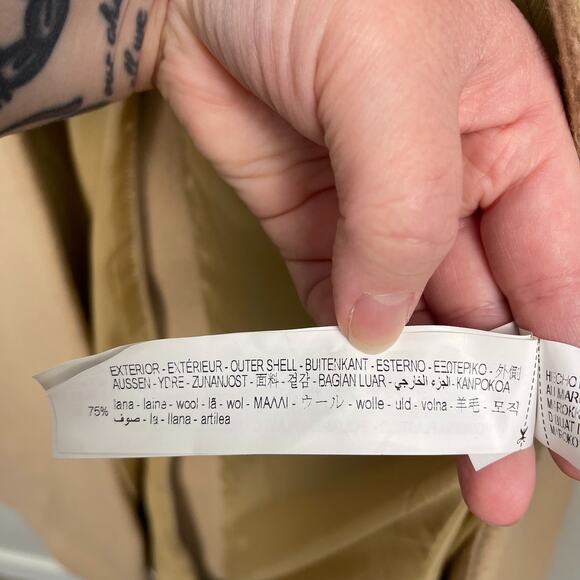 EXTERIOR - EXTÉRIEUR - OUTER SHELL - BUITENKANT - ESTERNO - ΕΞΩΤΕΡΙΚΟ - 外側
AUSSEN - YDRE - ZUNANJOST - 面料 - 겉감 - BAGIAN LUAR - الجزء الخارجي - KANPOKOA
75% lana - laine - wool - lã - wol - ΜΑΛΛΙ - ウール - wolle - uld - volna - 羊毛 - 모직
صوف - la - llana - artilea
HECHO